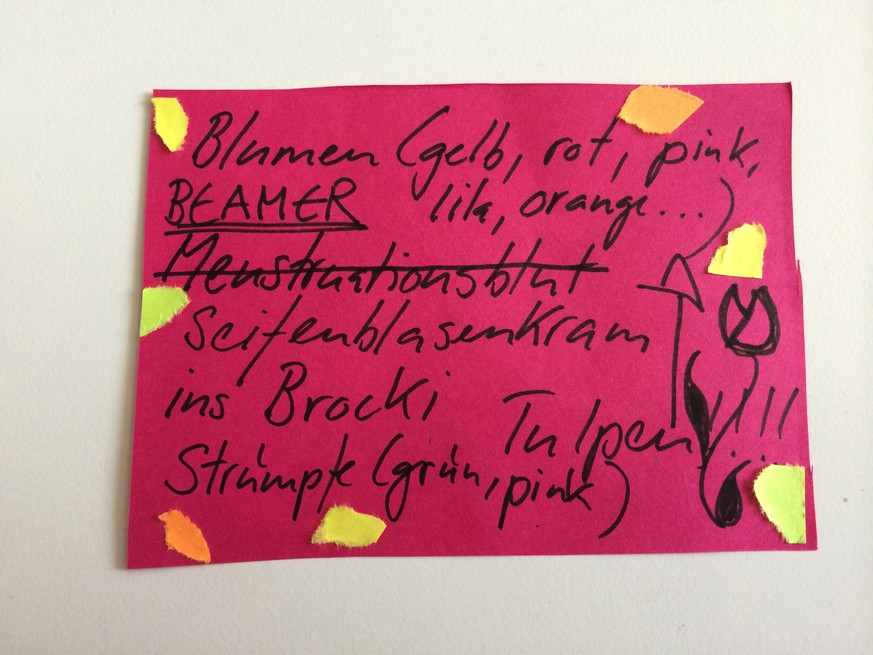 Blumen (gelb, rot, pink,
lila, orange...)
BEAMER
Menstruationsblut
Seifenblasenkram
ins Brocki
Tulpen!!!
Strümpfe (grün, pink)